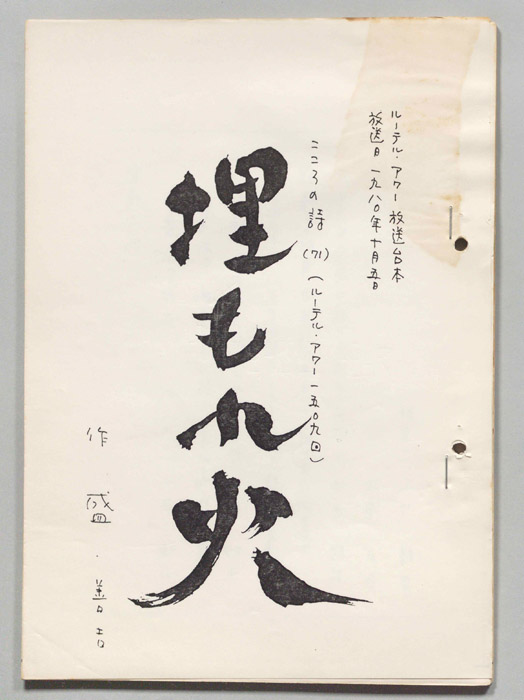 ルーテル・アワー放送台本
放送日 一九八〇年十月五日
こころの詩(71)(ルーテル・アワー一五〇九回)
埋もれ火
作 盛・善吉